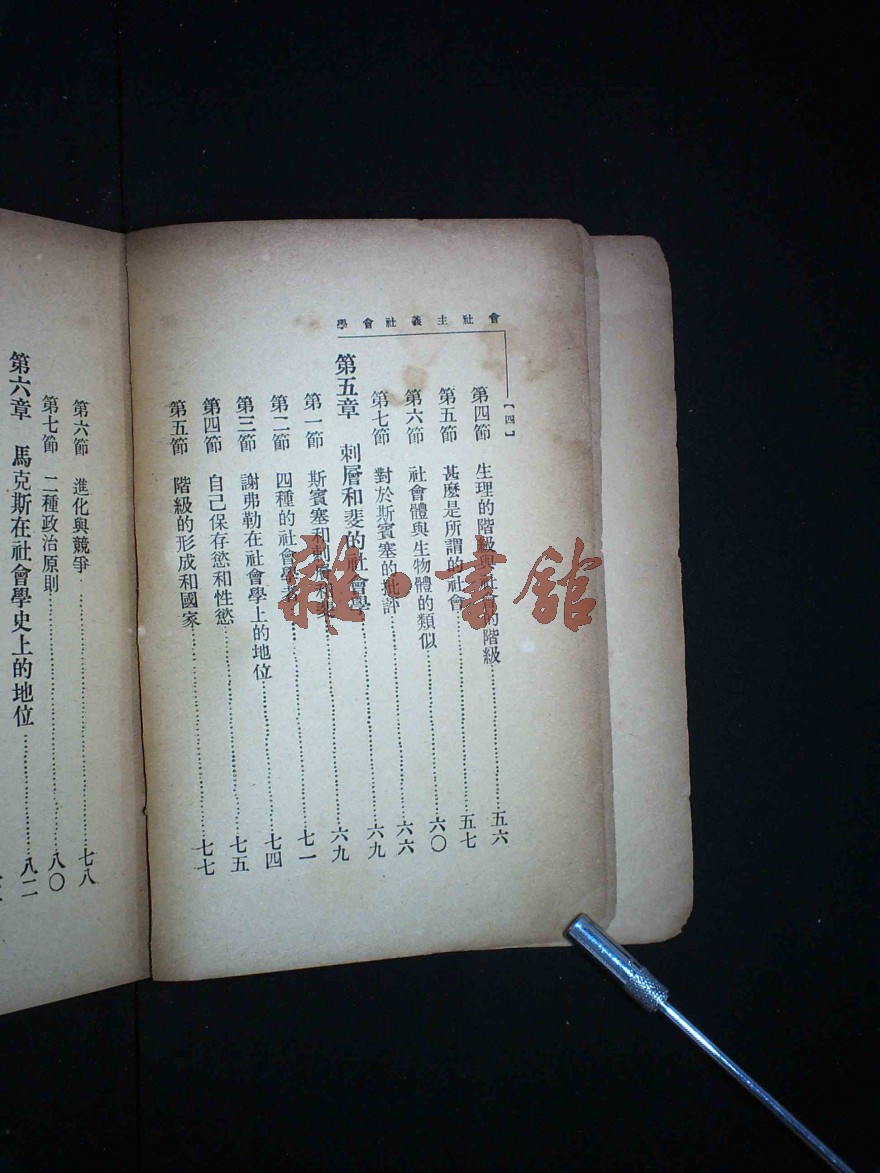 會社主義社會學
【四】
第四節 生理的階級與社會的階級……五六
第五節 甚麼是所謂的社會……五七
第六節 社會體與生物體的類似……六〇
第七節 對於斯賓塞的批評……六六
第五章 刺層和斐的社會學……六九
第一節 斯賓塞和刺層和斐……六九
第二節 四種的社會學者……七一
第三節 謝弗勒在社會學上的地位……七四
第四節 自己保存慾和性慾……七五
第五節 階級的形成和國家……七七
第六節 進化與競爭……七八
第七節 二種政治原則……八〇
第六章 馬克斯在社會學史上的地位……八二
雜·書館